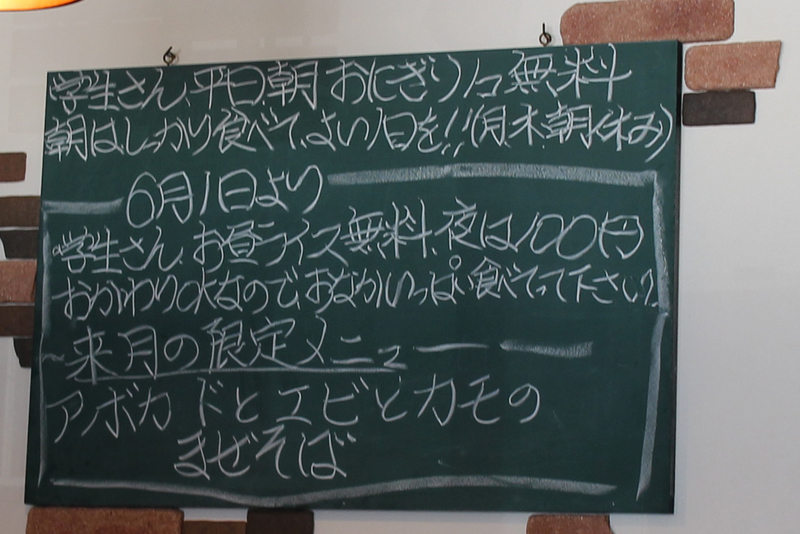 学生さん、平日、朝おにぎり1コ無料
朝はしっかり食べて、よい1日を!!(月木朝休み)
6月1日より
学生さん、お昼ライス無料、夜は100円
おかわりOKなので、おなかいっぱい食べてって下さい。
来月の限定メニュー
アボカドとエビとカモの
まぜそば